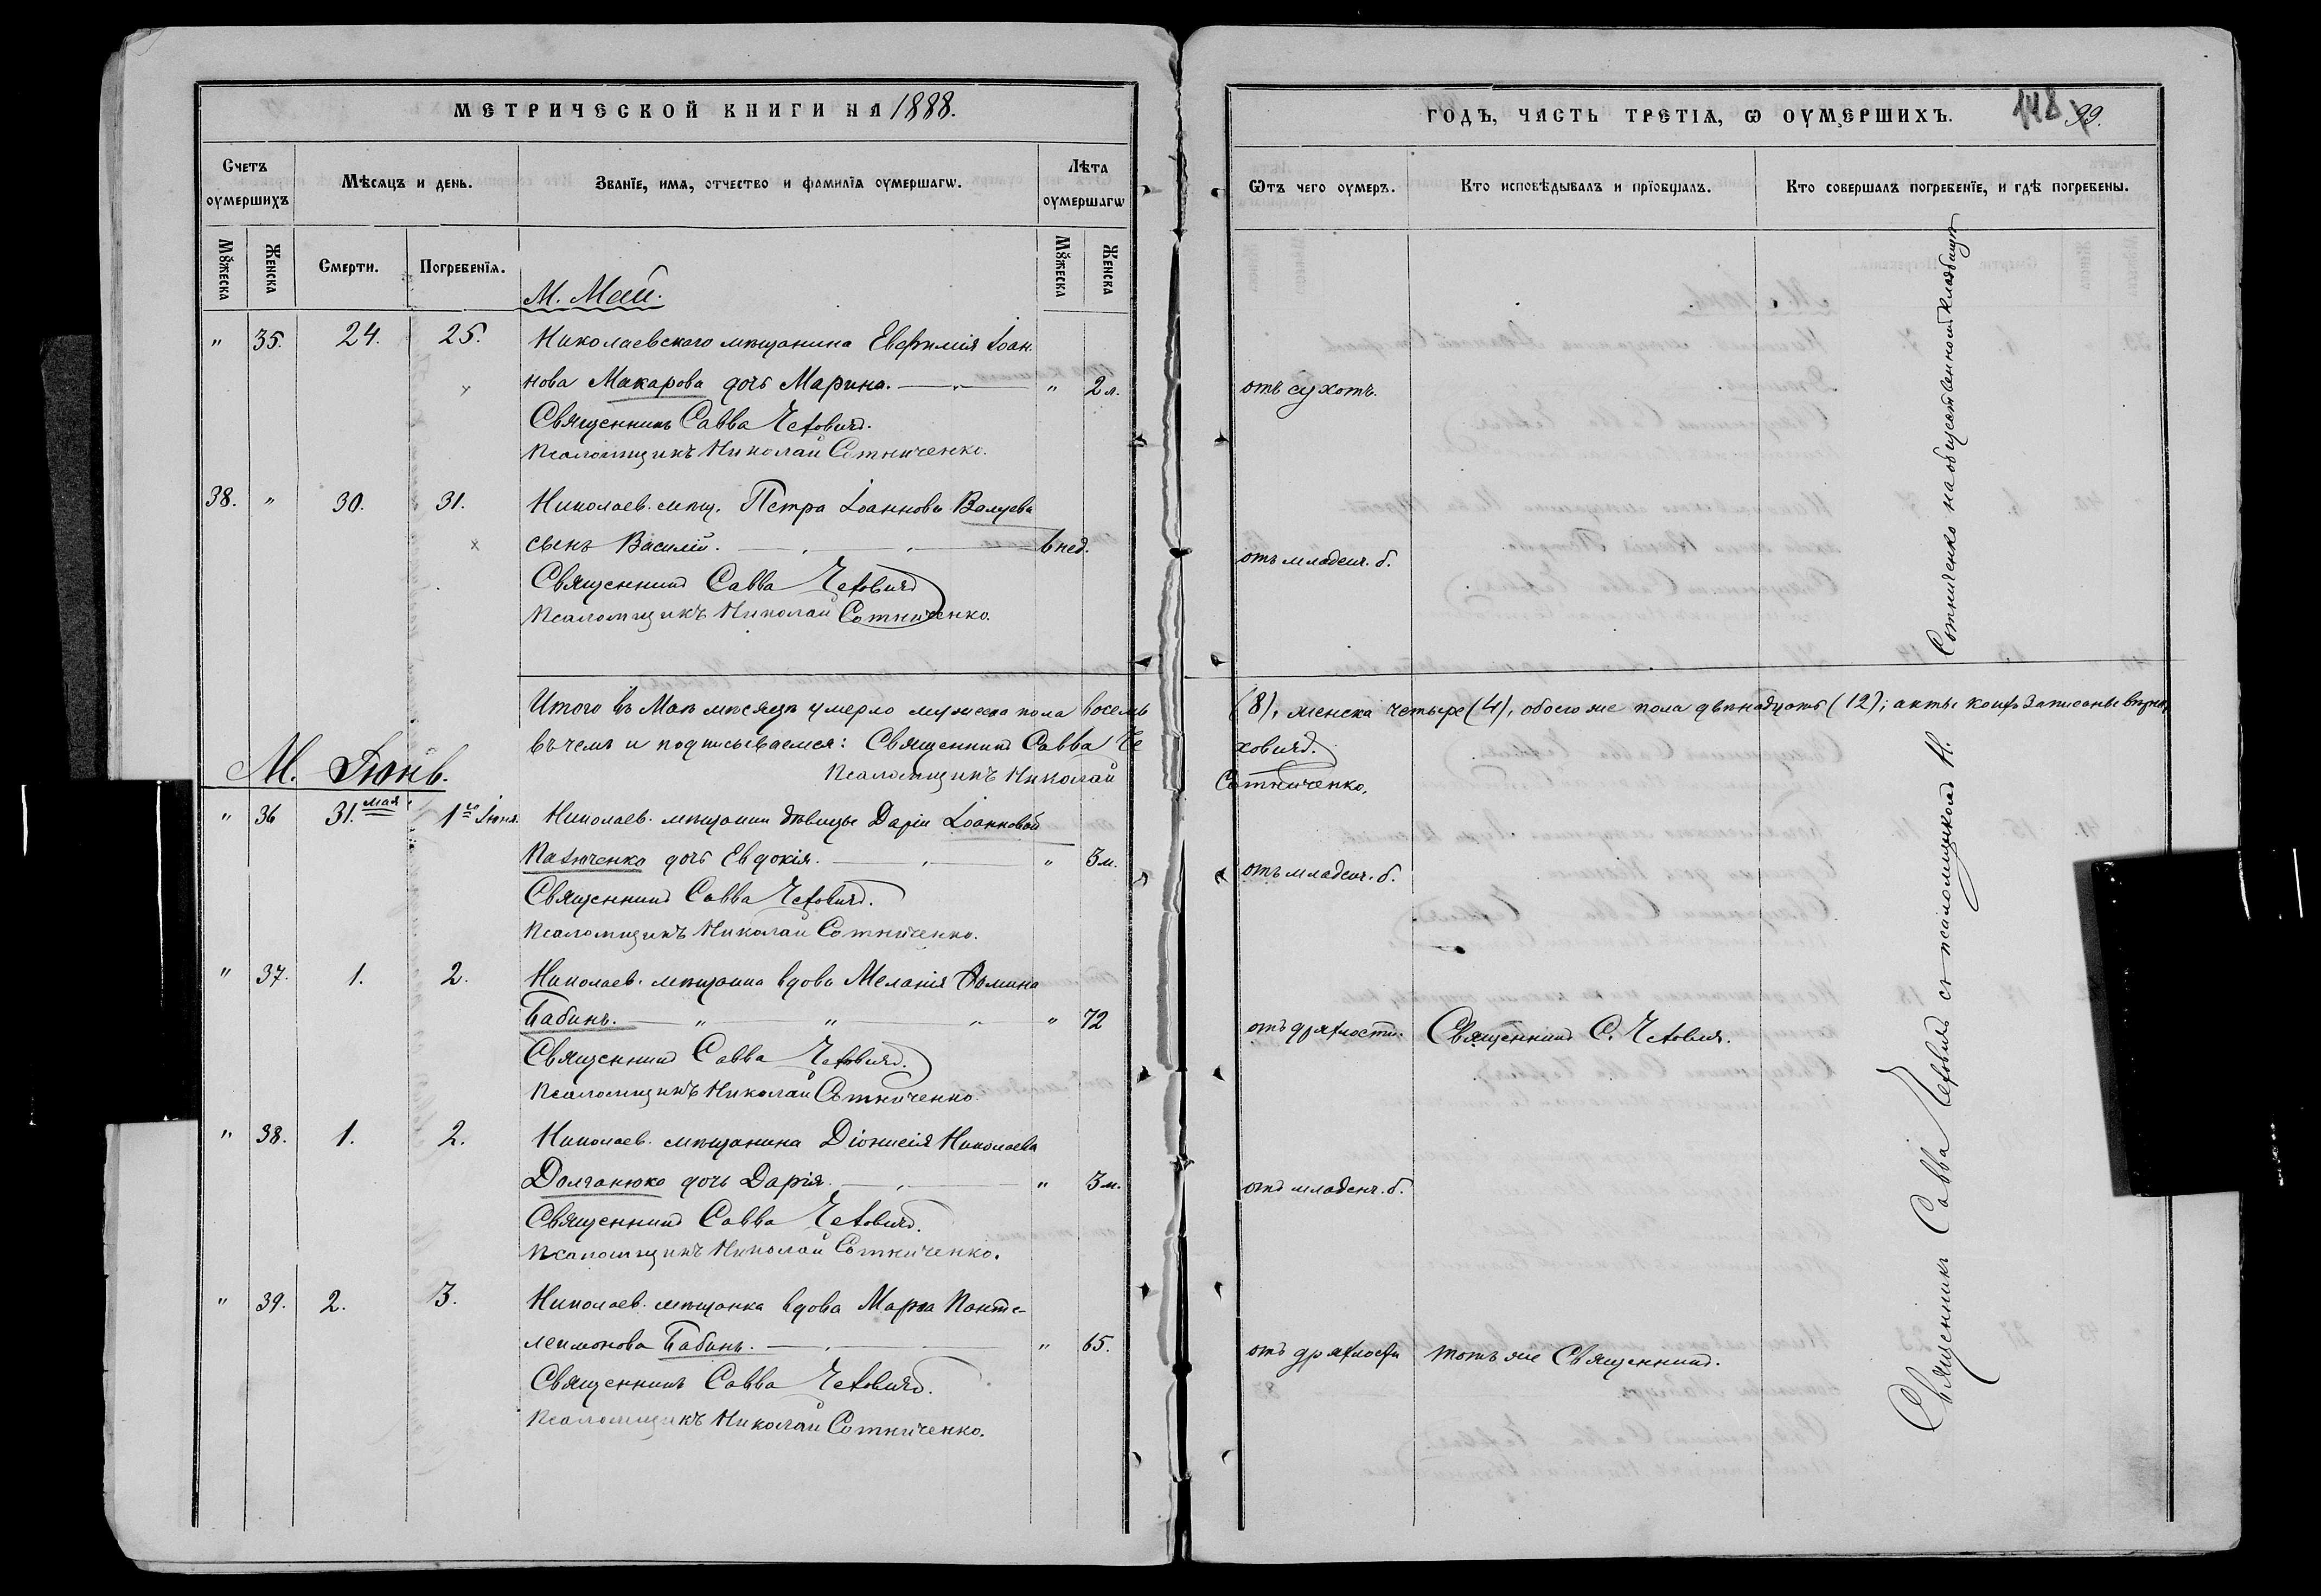 МЕТРИЧЕСКОЙ КНИГИ НА 1888.
Счетъ оумершихъ
Мѣсяцъ и день.
Званїе, имя, отчество и фамилїя оумершагѡ.
Лѣта оумершагѡ
Мꙋжеска
Женска
Смерти.
Погребенїя.
Мꙋжеска
Женска
М. Май.
" 35. 24. 25. Николаевскаго мѣщанина Евфимія Іоан-
нова Макарова дочь Марина. " 2 л.
Священникъ Савва Чеховичъ.
Псаломщикъ Николай Сотниченко.
38. " 30. 31. Николаев. мѣщ. Петра Іоаннова Валуева
сынъ Василій. 6 нед.
Священникъ Савва Чеховичъ
Псаломщикъ Николай Сотниченко.
Итого въ Маѣ мѣсяцѣ умерло мужеска пола восемь
въ чемъ и подписываемся: Священникъ Савва Че
Псаломщикъ Николай
М. Іюнь.
" 36 31. мая 1го Іюня. Николаев. мѣщанки дѣвицы Даріи Іоанновой
Пахюченко дочь Евдокія. " 3 м.
Священникъ Савва Чеховичъ.
Псаломщикъ Николай Сотниченко.
" 37. 1. 2. Николаев. мѣщанка вдова Меланія Ѳомина
Бабинъ. " 72
Священникъ Савва Чеховичъ.
Псаломщикъ Николай Сотниченко.
" 38. 1. 2. Николаев. мѣщанина Діонисія Николаева
Долганюка дочь Дарія. " 3 м.
Священникъ Савва Чеховичъ.
Псаломщикъ Николай Сотниченко.
" 39. 2. 3. Николаев. мѣщанка вдова Марѳа Панте-
леимонова Бабинъ. " 65.
Священникъ Савва Чеховичъ.
Псаломщикъ Николай Сотниченко.
ГОДЪ, ЧАСТЬ ТРЕТІѦ, Ѡ ОУМЕРШИХЪ.
148 99.
Ѿтъ чего оумеръ.
Кто исповѣдывалъ и прїобщалъ.
Кто совершалъ погребенїе, и гдѣ погребены.
отъ сухотъ.
отъ младенч. б.
(8), женска четыре (4), обоего же пола двѣнадцать (12); акты коихъ записаны вѣрно,
ховичъ.
Сотниченко.
отъ младенч. б.
отъ дряхлости. Священникъ С. Чеховичъ.
отъ младенч. б.
отъ дряхлости тотъ же Священникъ.
Священникъ Савва Чеховичъ съ псаломщикомъ Н. Сотниченко на общественномъ кладбищѣ